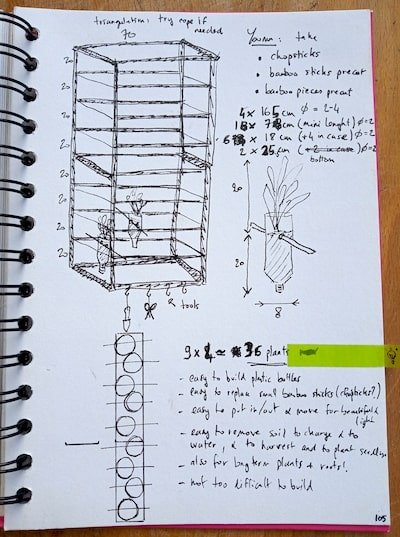 triangulation: try rope if
needed
70
20
20
20
20
20
20
20
tools
You: take
• chopsticks
• bamboo sticks precut
• bamboo pieces precut
4 × 165 cm Ø = 2-4
cm (mini lenght) Ø=2
18 cm (+4 in case) Ø=2
2 × 25 cm (+2 in case) Ø=2
bottom
20
20
8
9 × 4 ≃ 36 plants
- easy to build platic bottles
- easy to replace small bamboo sticks (chopsticks?)
- easy to put in/out & move for
light
- easy to remove soil to change & to
water, & to harvest and to plant
- also for longterm plants & roots!
- not too difficult to build
105